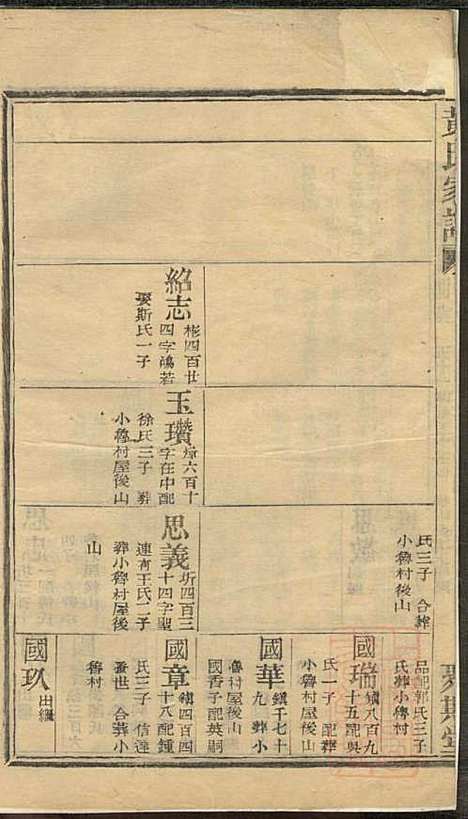 黃氏家譜
聚斯堂
紹志
彬四百廿
四字鴻若
娶斯氏一子
玉瓚
焞六百十
字在中配
徐氏三子 葬
小魯村屋後山
氏三子 合葬
小魯村後山
思義
圻四百三
十四字聖
連育王氏二子
葬小魯村屋後
山
品配郭氏三子
氏葬小傳村
國瑞
鎮八百九
十五配吳
氏一子 配葬
小魯村屋後山
國華
鎮千七十
九 葬小
魯村屋後山
國香子配英嗣
國章
鎮四百四
十八配鍾
氏三子 信達
發世 合葬小
魯村
國玖
出繼